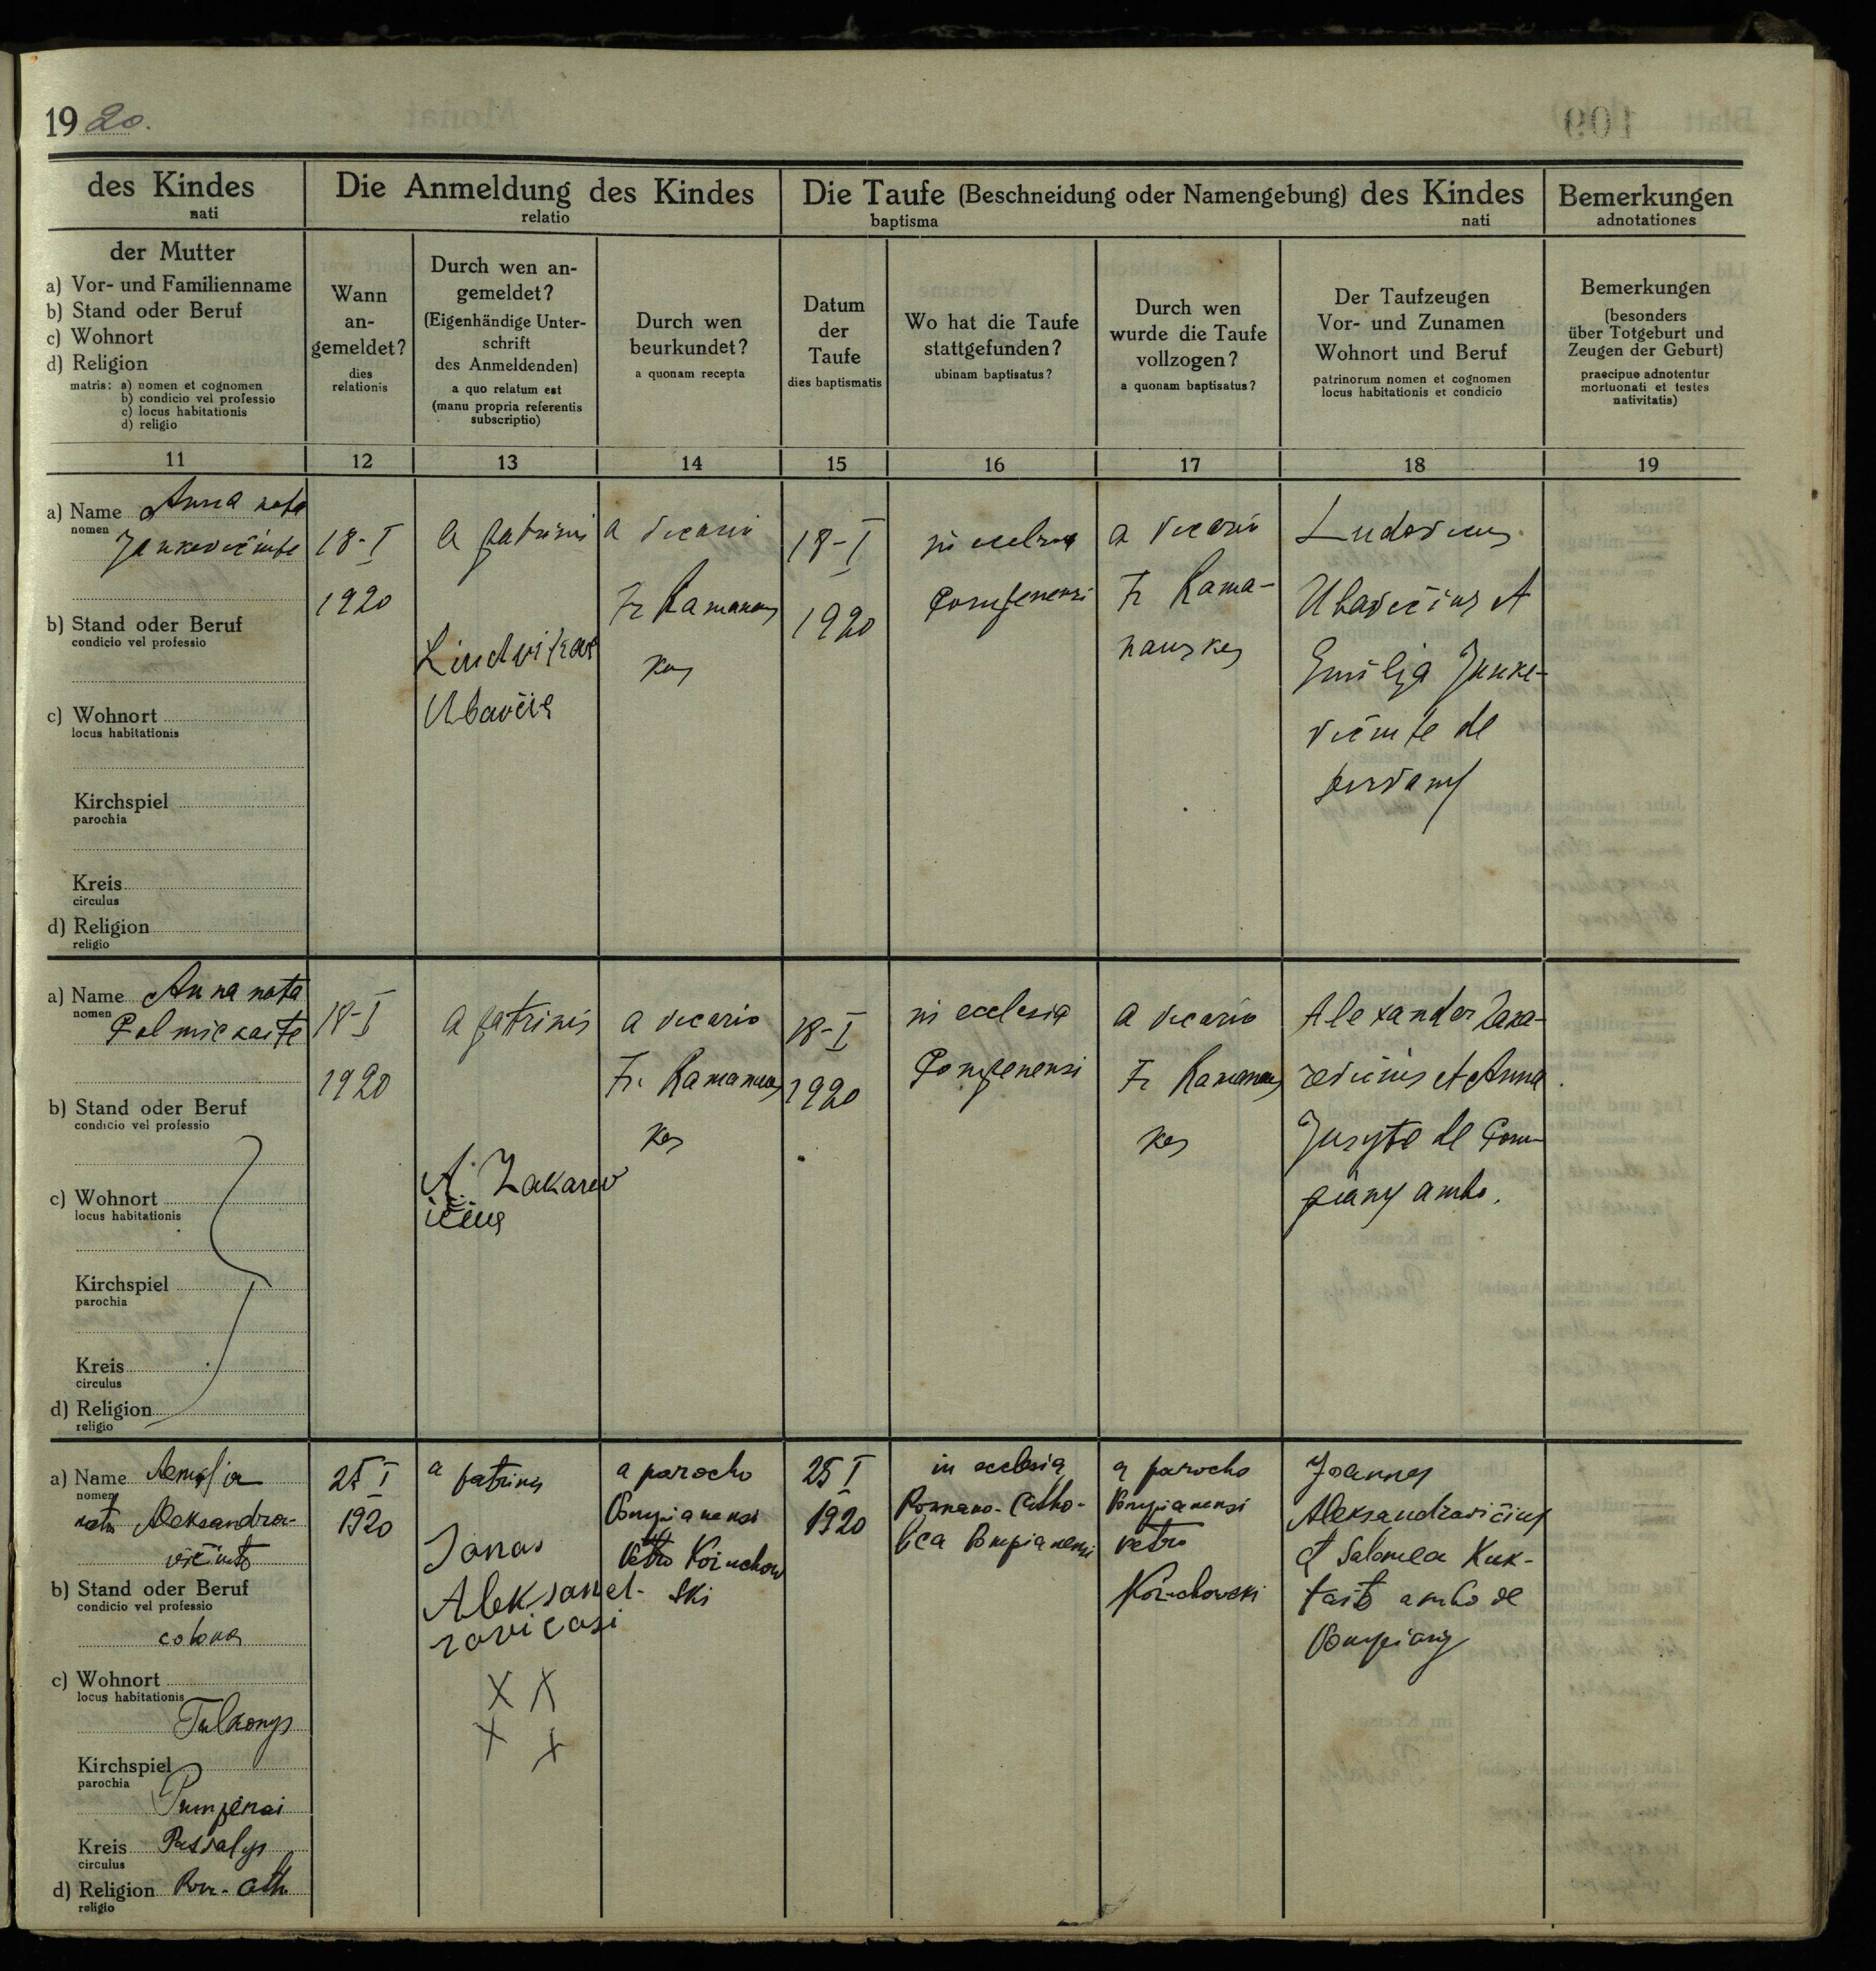 1920.
des Kindes
nati
Die Anmeldung des Kindes
relatio
Die Taufe (Beschneidung oder Namengebung) des Kindes
baptisma nati
Bemerkungen
adnotationes
der Mutter
a) Vor- und Familienname
b) Stand oder Beruf
c) Wohnort
d) Religion
matris: a) nomen et cognomen
b) condicio vel professio
c) locus habitationis
d) religio
Wann
an-
gemeldet?
dies
relationis
Durch wen an-
gemeldet?
(Eigenhändige Unter-
schrift
des Anmeldenden)
a quo relatum est
(manu propria referentis
subscriptio)
Durch wen
beurkundet?
a quonam recepta
Datum
der
Taufe
dies baptismatis
Wo hat die Taufe
stattgefunden?
ubinam baptisatus?
Durch wen
wurde die Taufe
vollzogen?
a quonam baptisatus?
Der Taufzeugen
Vor- und Zunamen
Wohnort und Beruf
patrinorum nomen et cognomen
locus habitationis et condicio
Bemerkungen
(besonders
über Totgeburt und
Zeugen der Geburt)
praecipue adnotentur
mortuonati et testes
nativitatis)
11 12 13 14 15 16 17 18 19
a) Name Anna nata
nomen
b) Stand oder Beruf
condicio vel professio
c) Wohnort
locus habitationis
Kirchspiel
parochia
Kreis
circulus
d) Religion
religio
18-I
1920
a patrinis
a vicario
Fr Ramanaus
kas
18-I
1920
in ecclesia
a vicario
Fr Rama-
nauskas
Ludovicus
et
Emilija Janke-
vičiute de
a) Name Anna nata
nomen
b) Stand oder Beruf
condicio vel professio
c) Wohnort
locus habitationis
Kirchspiel
parochia
Kreis
circulus
d) Religion
religio
18-I
1920
a patrinis
A. Zakarev
ičius
a vicario
Fr. Ramanaus
kas
18-I
1920
in ecclesia
a vicario
Fr Ramanaus
kas
Alexander Zaka-
revičius et Anna
de Pom-
piany ambo.
a) Name Aemilia
nomen
nata Aleksandra-
vičiute
b) Stand oder Beruf
condicio vel professio
colona
c) Wohnort
locus habitationis
Talkonys
Kirchspiel
parochia
Pumpėnai
Kreis
circulus
d) Religion Rom.-Cath.
religio
25 I
1920
a patrinis
Jonas
Aleksand-
ravicasi
X X
X X
a parocho
Pompianensi
Petro
ski
25 I
1920
in ecclesia
Romano-Catho-
lica Pompianensi
a parocho
Pompianensi
Petro
Joannes
Aleksandravičius
et Salomea Kuk-
taitė ambo de
Pompiany